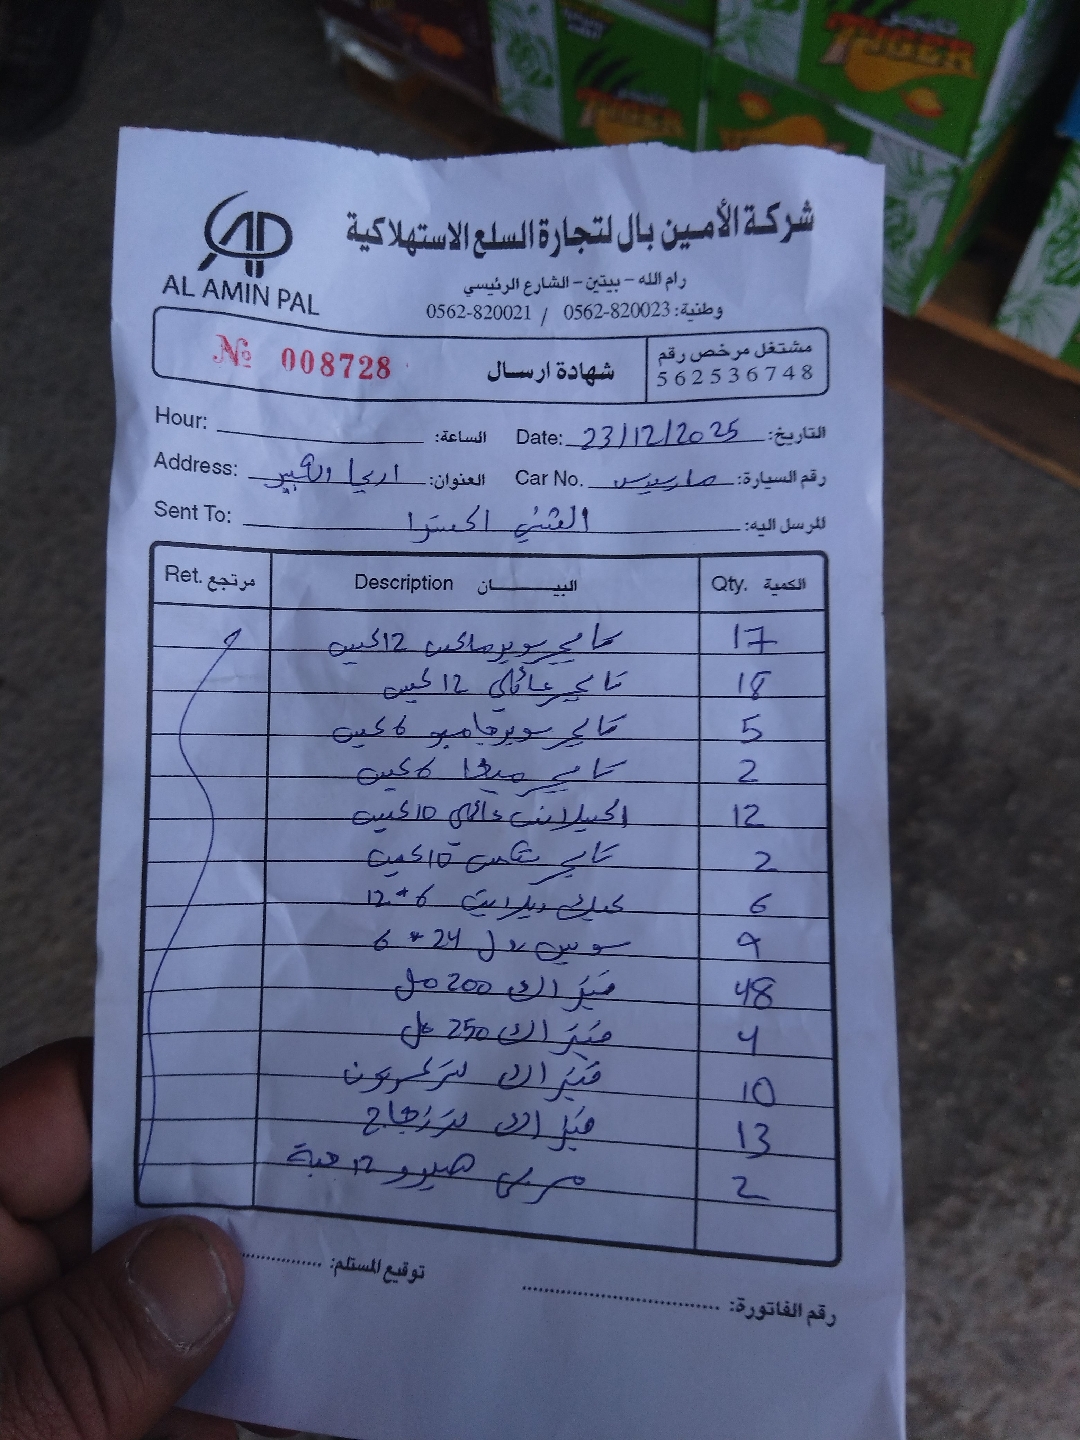 تايجر
TIGER
TIGER
AP
AL AMIN PAL
شركة الأمين بال لتجارة السلع الاستهلاكية
رام الله - بيتين - الشارع الرئيسي
وطنية: 0562-820023 / 0562-820021
مشتغل مرخص رقم
562536748
شهادة ارسال
№ 008728
التاريخ: 23/12/2025 Date:
الساعة: Hour:
رقم السيارة: Car No.
العنوان: اريحا Address:
المرسل اليه: Sent To:
الكمية Qty. البيـــــان Description مرتجع Ret.
17 تايجر سوبر 12 كيس
18 تايجر عائلي 12 كيس
5 تايجر سوبر جامبو 6 كيس
2 تايجر ميغا 6 كيس
12 عائلي 10 كيس
2 تايجر 10 كيس
6 6*12
9 سويس رول 24*6
48 200 مل
4 250 مل
10 لتر كرتون
13 لتر زجاج
2 12 حبة
رقم الفاتورة:
توقيع المستلم: